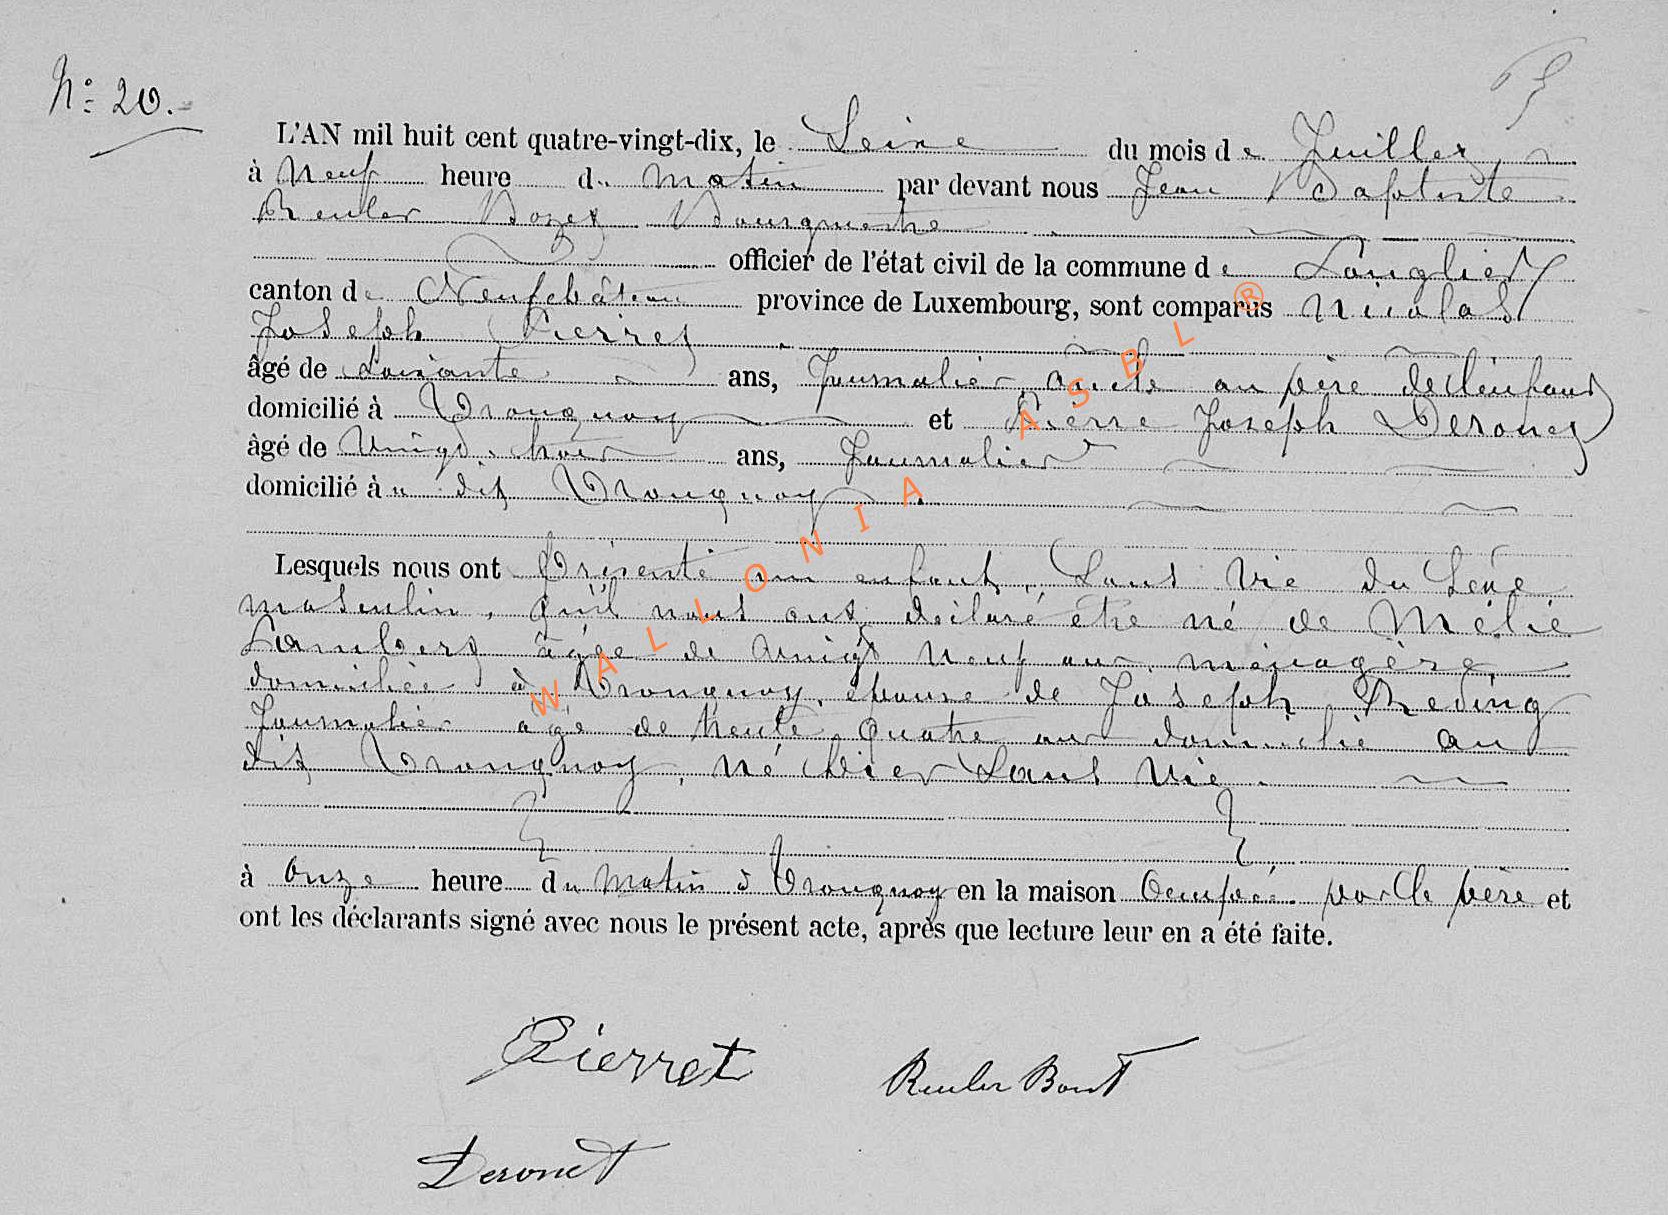 N° 20.-
L'AN mil huit cent quatre-vingt-dix, le Seize du mois de Juillet,
à Neuf heure du Matin par devant nous Jean Baptiste
Reuler Bozet Bourgmestre
officier de l'état civil de la commune de Longlier
canton de Neufchâteau province de Luxembourg, sont comparus Nicolas
Joseph Pierret
âgé de Soixante ans, Journalier, oncle au père de l'enfant
domicilié à Tronquoy et Pierre Joseph Deronet
âgé de Vingt trois ans, Journalier
domicilié au dit Tronquoy.
Lesquels nous ont Présenté un enfant, Sans Vie du Sexe
masculin, qu'il nous ont déclaré être né de Mélie
Lambert âgée de Vingt Neuf ans ménagère
domiciliée à Tronquoy, épouse de Joseph Reding
Journalier âgé de trente quatre ans domicilié au
dit Tronquoy, né hier Sans Vie.
à Onze heure du Matin à Tronquoy en la maison Occupée par le père et
ont les déclarants signé avec nous le présent acte, après que lecture leur en a été faite.
Pierret
Deronet
WALLONIA ASBL ®